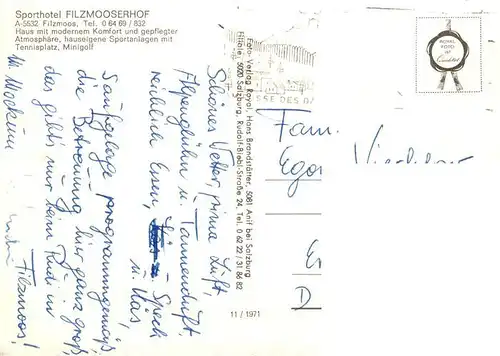 Sporthotel FILZMOOSERHOF
A-5532 Filzmoos, Tel. 0 64 69 / 832
Haus mit modernem Komfort und gepflegter
Atmosphäre, hauseigene Sportanlagen mit
Tennisplatz, Minigolf
Schönes Wetter, prima Luft,
Alpenglühn u. Tannenduft,
reichlich Essen, Speck
u. Kas,
Saufgelage programmgemäß
die Betreuung hier ganz groß,
das gibt's nur beim Rudi in
Filzmoos!
Foto-Verlag Royal, Hans Brandstätter, 5081 Anif bei Salzburg
Filiale: 5020 Salzburg, Rudolf-Biebl-Straße 24, Tel. 0 62 22 / 31 86 82
11 / 1971
ROYAL
FOTO
Fam.
Egon
D